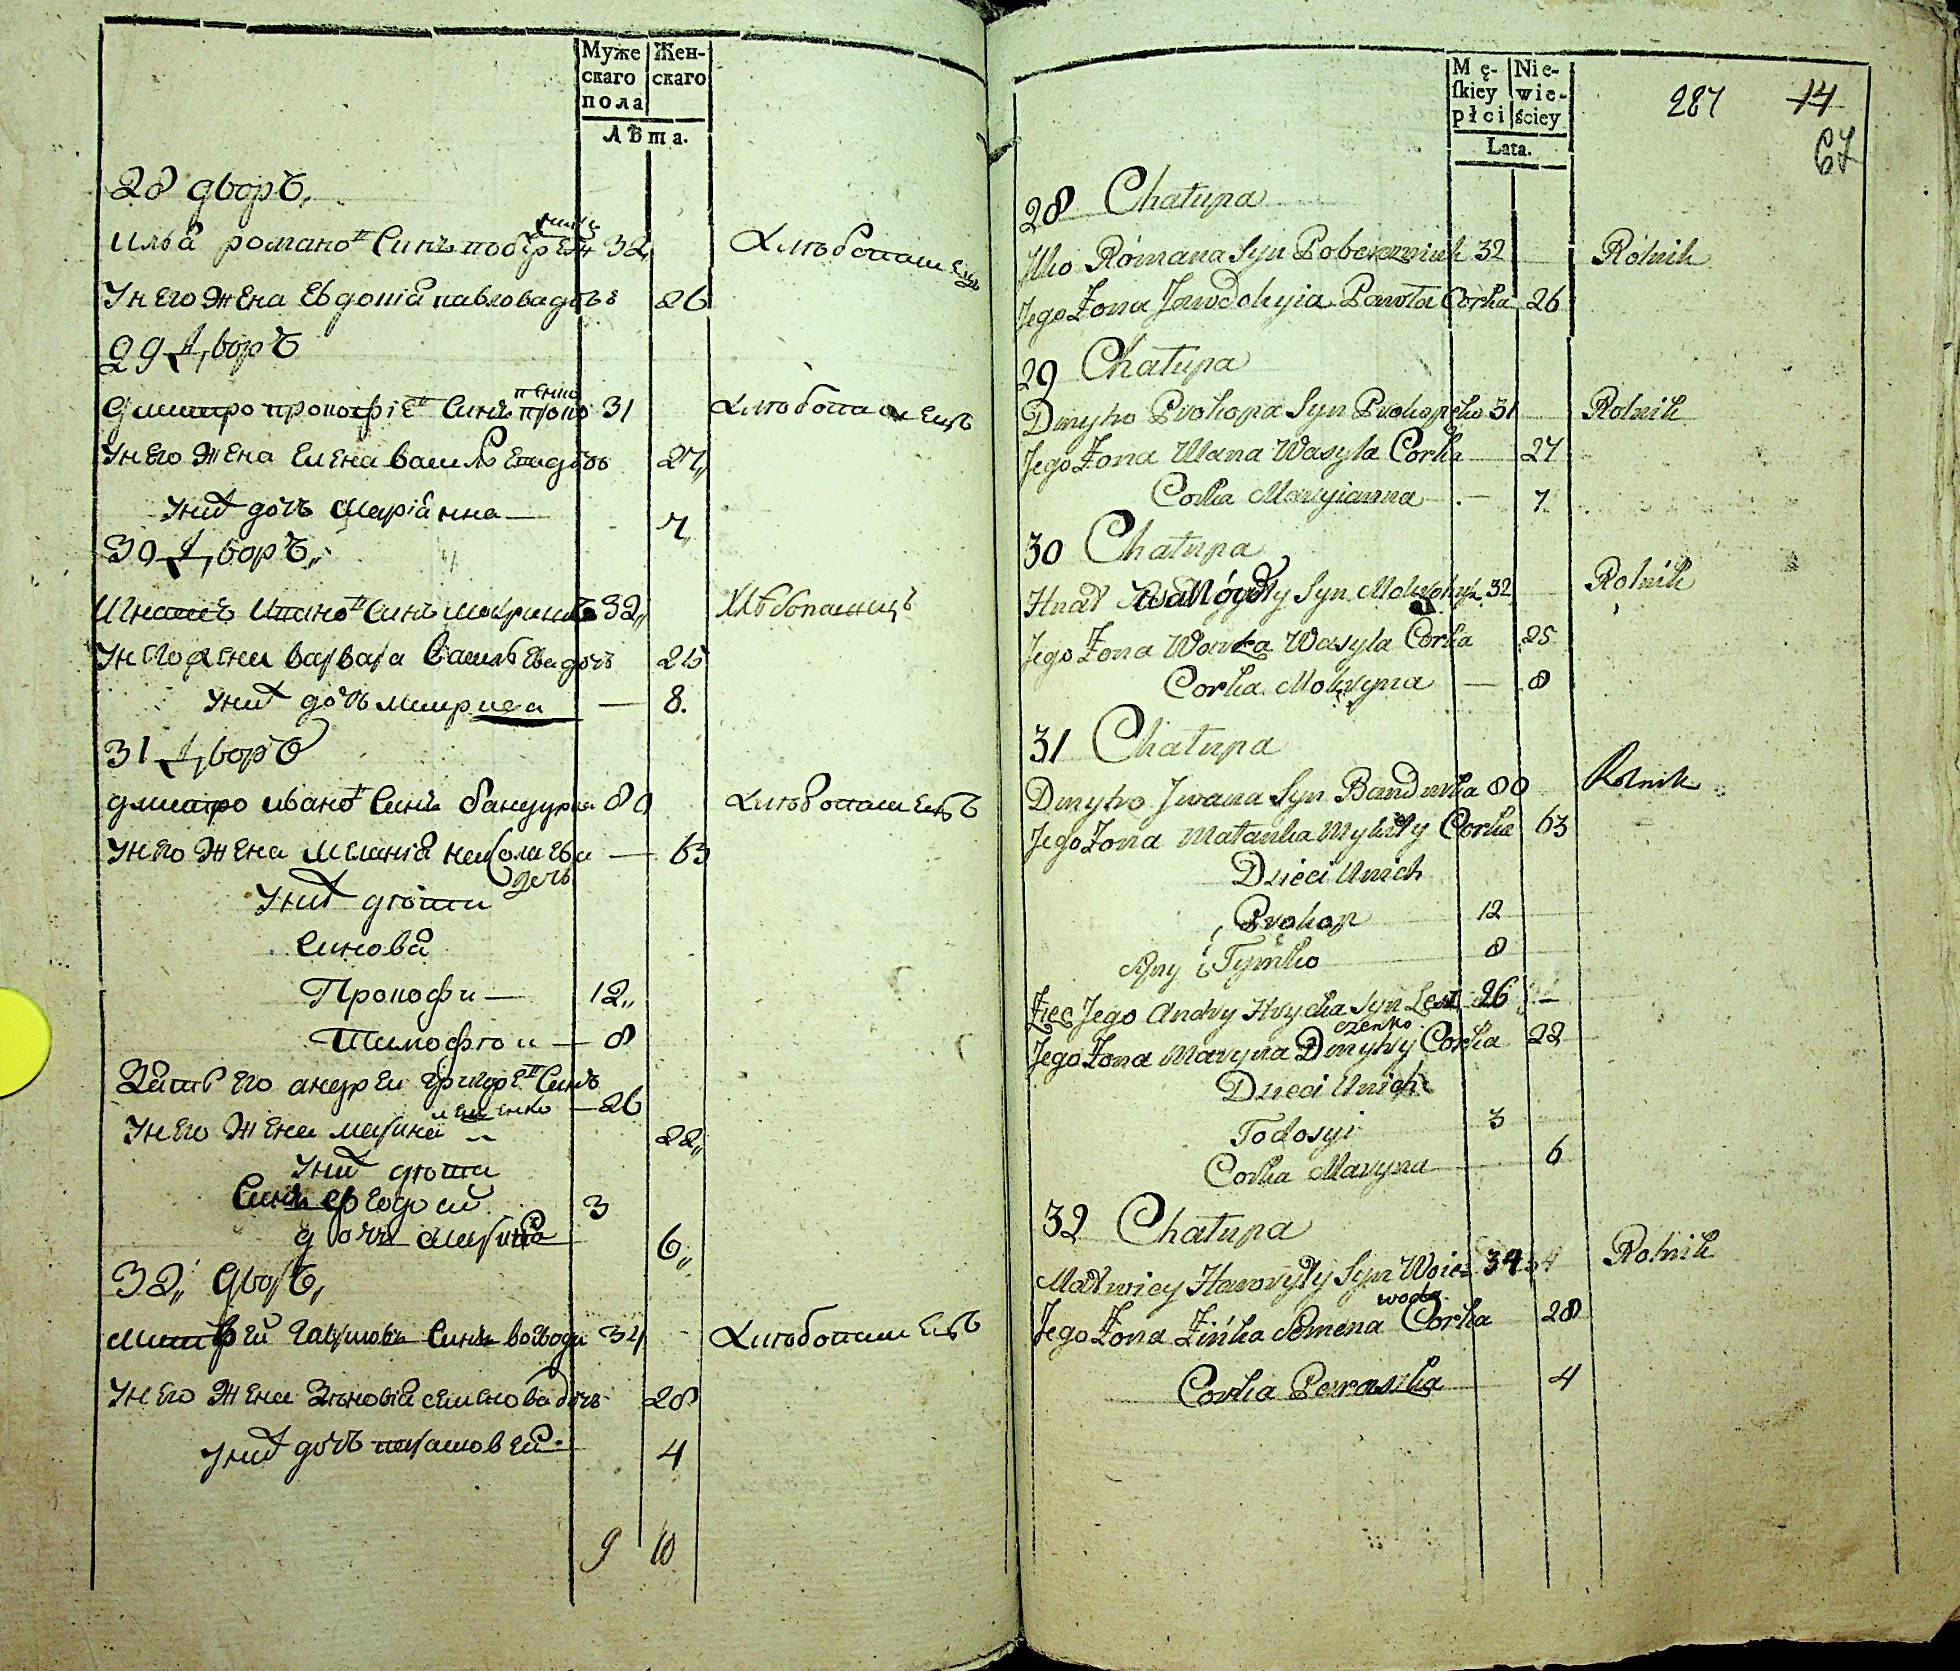 Муже
скаго
пола
Жен-
скаго
Лѣта.
28 дворъ,
Илья романовъ Синъ побереж 32
никъ
Хлѣбопашецъ
У него Жена Евдокія павлова дочь 26
29 Дворъ
Дмитро прокофіевъ Синъ проко 31
пенко
Хлѣбопашецъ
У него Жена Елена василѣва дочь 27
У них дочь Маріанна — 7
30 Дворъ
Игнатъ Синъ 32
Хлѣбопашецъ
У него жена варвара василѣва дочь 25
У них дочь — 8.
31 Дворъ
Дмитро ивановъ Синъ бандурка 80
Хлѣбопашецъ
У него Жена Меланія николаева — 63
дочь
У них дѣти
Синовя
Прокофи — 12
Тимофѣи — 8
Зять его андреи Синъ
лещенко — 26
У него Жена марина 22
У них дѣти
Синъ Феодосий 3
дочь Марина 6
32 дворъ,
Матфей Синъ воевода 34
Хлѣбопашецъ
У него Жена Зѣновія семенова дочь 28
У них дочь 4
9 10
Mę-
skiey
płci
Nie-
wie-
ściey
Lata.
287 14
67
28 Chałupa
Ilko Romana Syn Pobereznik 32 Rolnik
Jego Żona Jawdokyia Pawła Corka 26
29 Chałupa
Dmytro Prokopa Syn Prokopeńko 31 Rolnik
Jego Żona Ulana Wasyla Corka 27
Corka Maryianna — 7
30 Chałupa
Hnat Syn 32 Rolnik
Jego Żona Warka Wasyla Corka 25
Corka Mokryna — 8
31 Chałupa
Dmytro Jwana Syn Bandurka 80 Rolnik
Jego Żona Małanka Mykity Corka 63
Dzieci Unich
Prokop 12
Syny Tymko 8
Zięć Jego Andry Hrycka Syn Lesz 26 —
czenko
Jego Żona Maryna Dmytry Corka 22
Dzieci Unich
Todosyi 3
Corka Maryna 6
32 Chałupa
Matwiey Hawryły Syn Woie 34 Rolnik
woda
Jego Żona Zińka Semena Corka 28
Corka Paraska 4